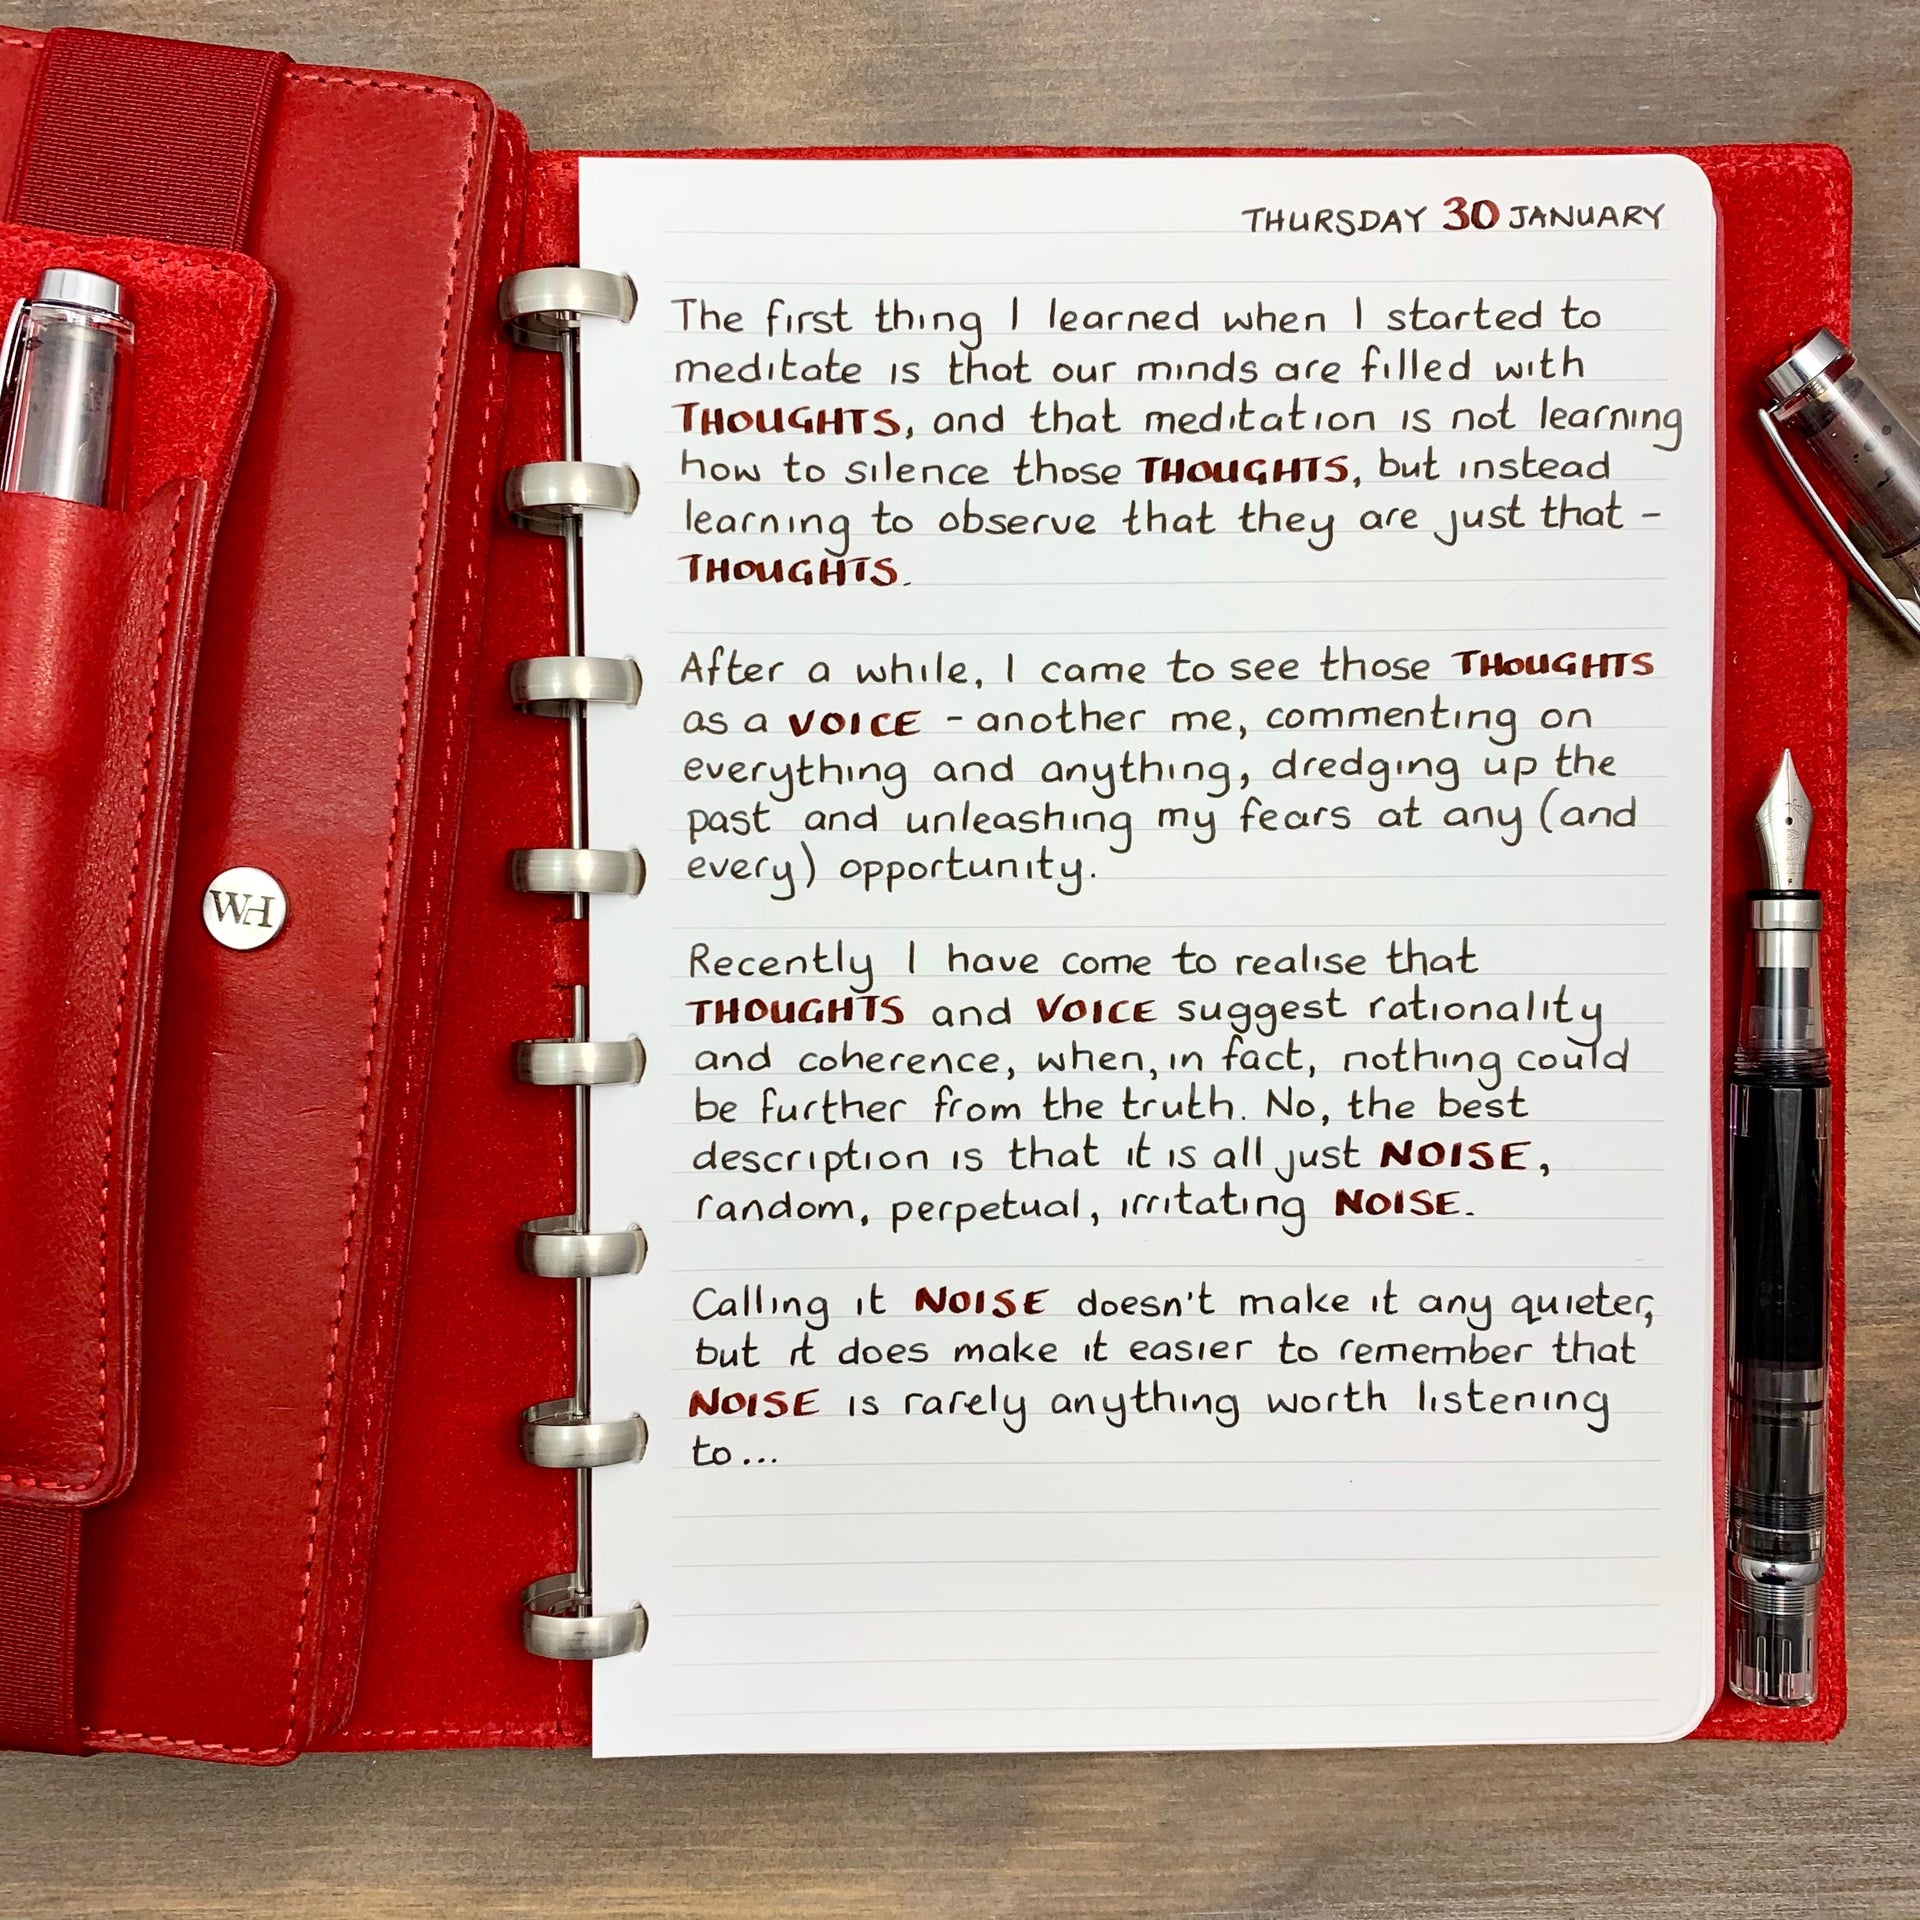 THURSDAY 30 JANUARY
The first thing I learned when I started to
meditate is that our minds are filled with
THOUGHTS, and that meditation is not learning
how to silence those THOUGHTS, but instead
learning to observe that they are just that -
THOUGHTS.
After a while, I came to see those THOUGHTS
as a VOICE - another me, commenting on
everything and anything, dredging up the
past and unleashing my fears at any (and
every) opportunity.
Recently I have come to realise that
THOUGHTS and VOICE suggest rationality
and coherence, when, in fact, nothing could
be further from the truth. No, the best
description is that it is all just NOISE,
random, perpetual, irritating NOISE.
Calling it NOISE doesn't make it any quieter,
but it does make it easier to remember that
NOISE is rarely anything worth listening
to...
WH